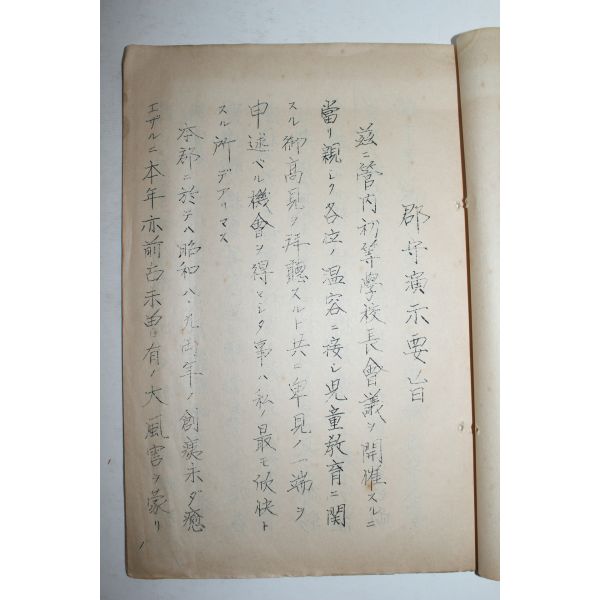 郡守演示要旨
茲ニ管内初等學校長會議ヲ開催スルニ
當リ親シク各位ノ温容ニ接シ児童教育ニ関
スル御高見ヲ拜聽スルト共ニ卑見ノ一端ヲ
申述ベル機會ヲ得マシタ事ハ私ノ最モ欣快ト
スル所デアリマス
本郡ニ於テハ昭和八、九両年ノ創痍未ダ癒
エザルニ本年亦前古未曽有ノ大風害ヲ蒙リ